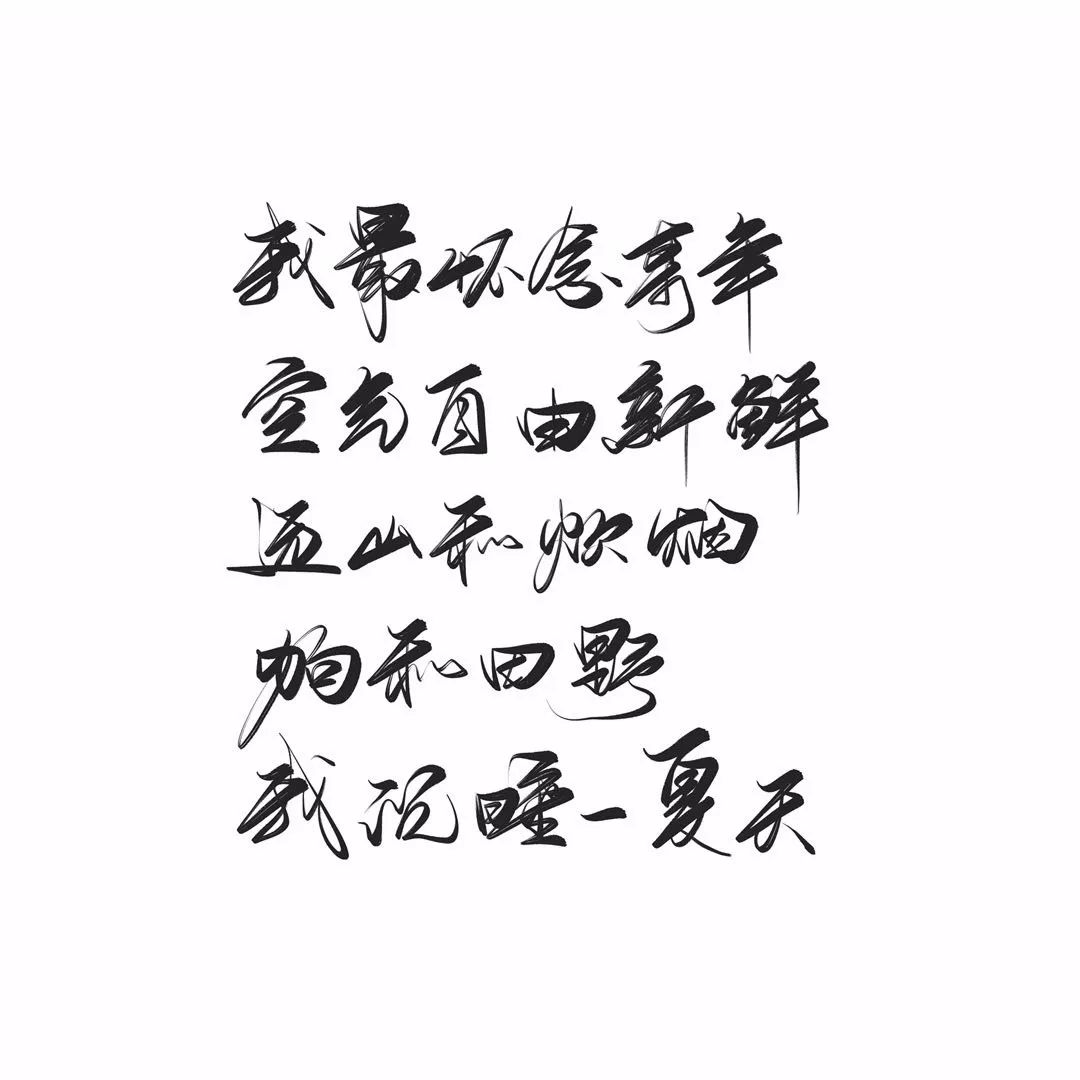 我最怀念奇年
空气自由新鲜
远山和炊烟
狗和田野
我沉睡一夏天